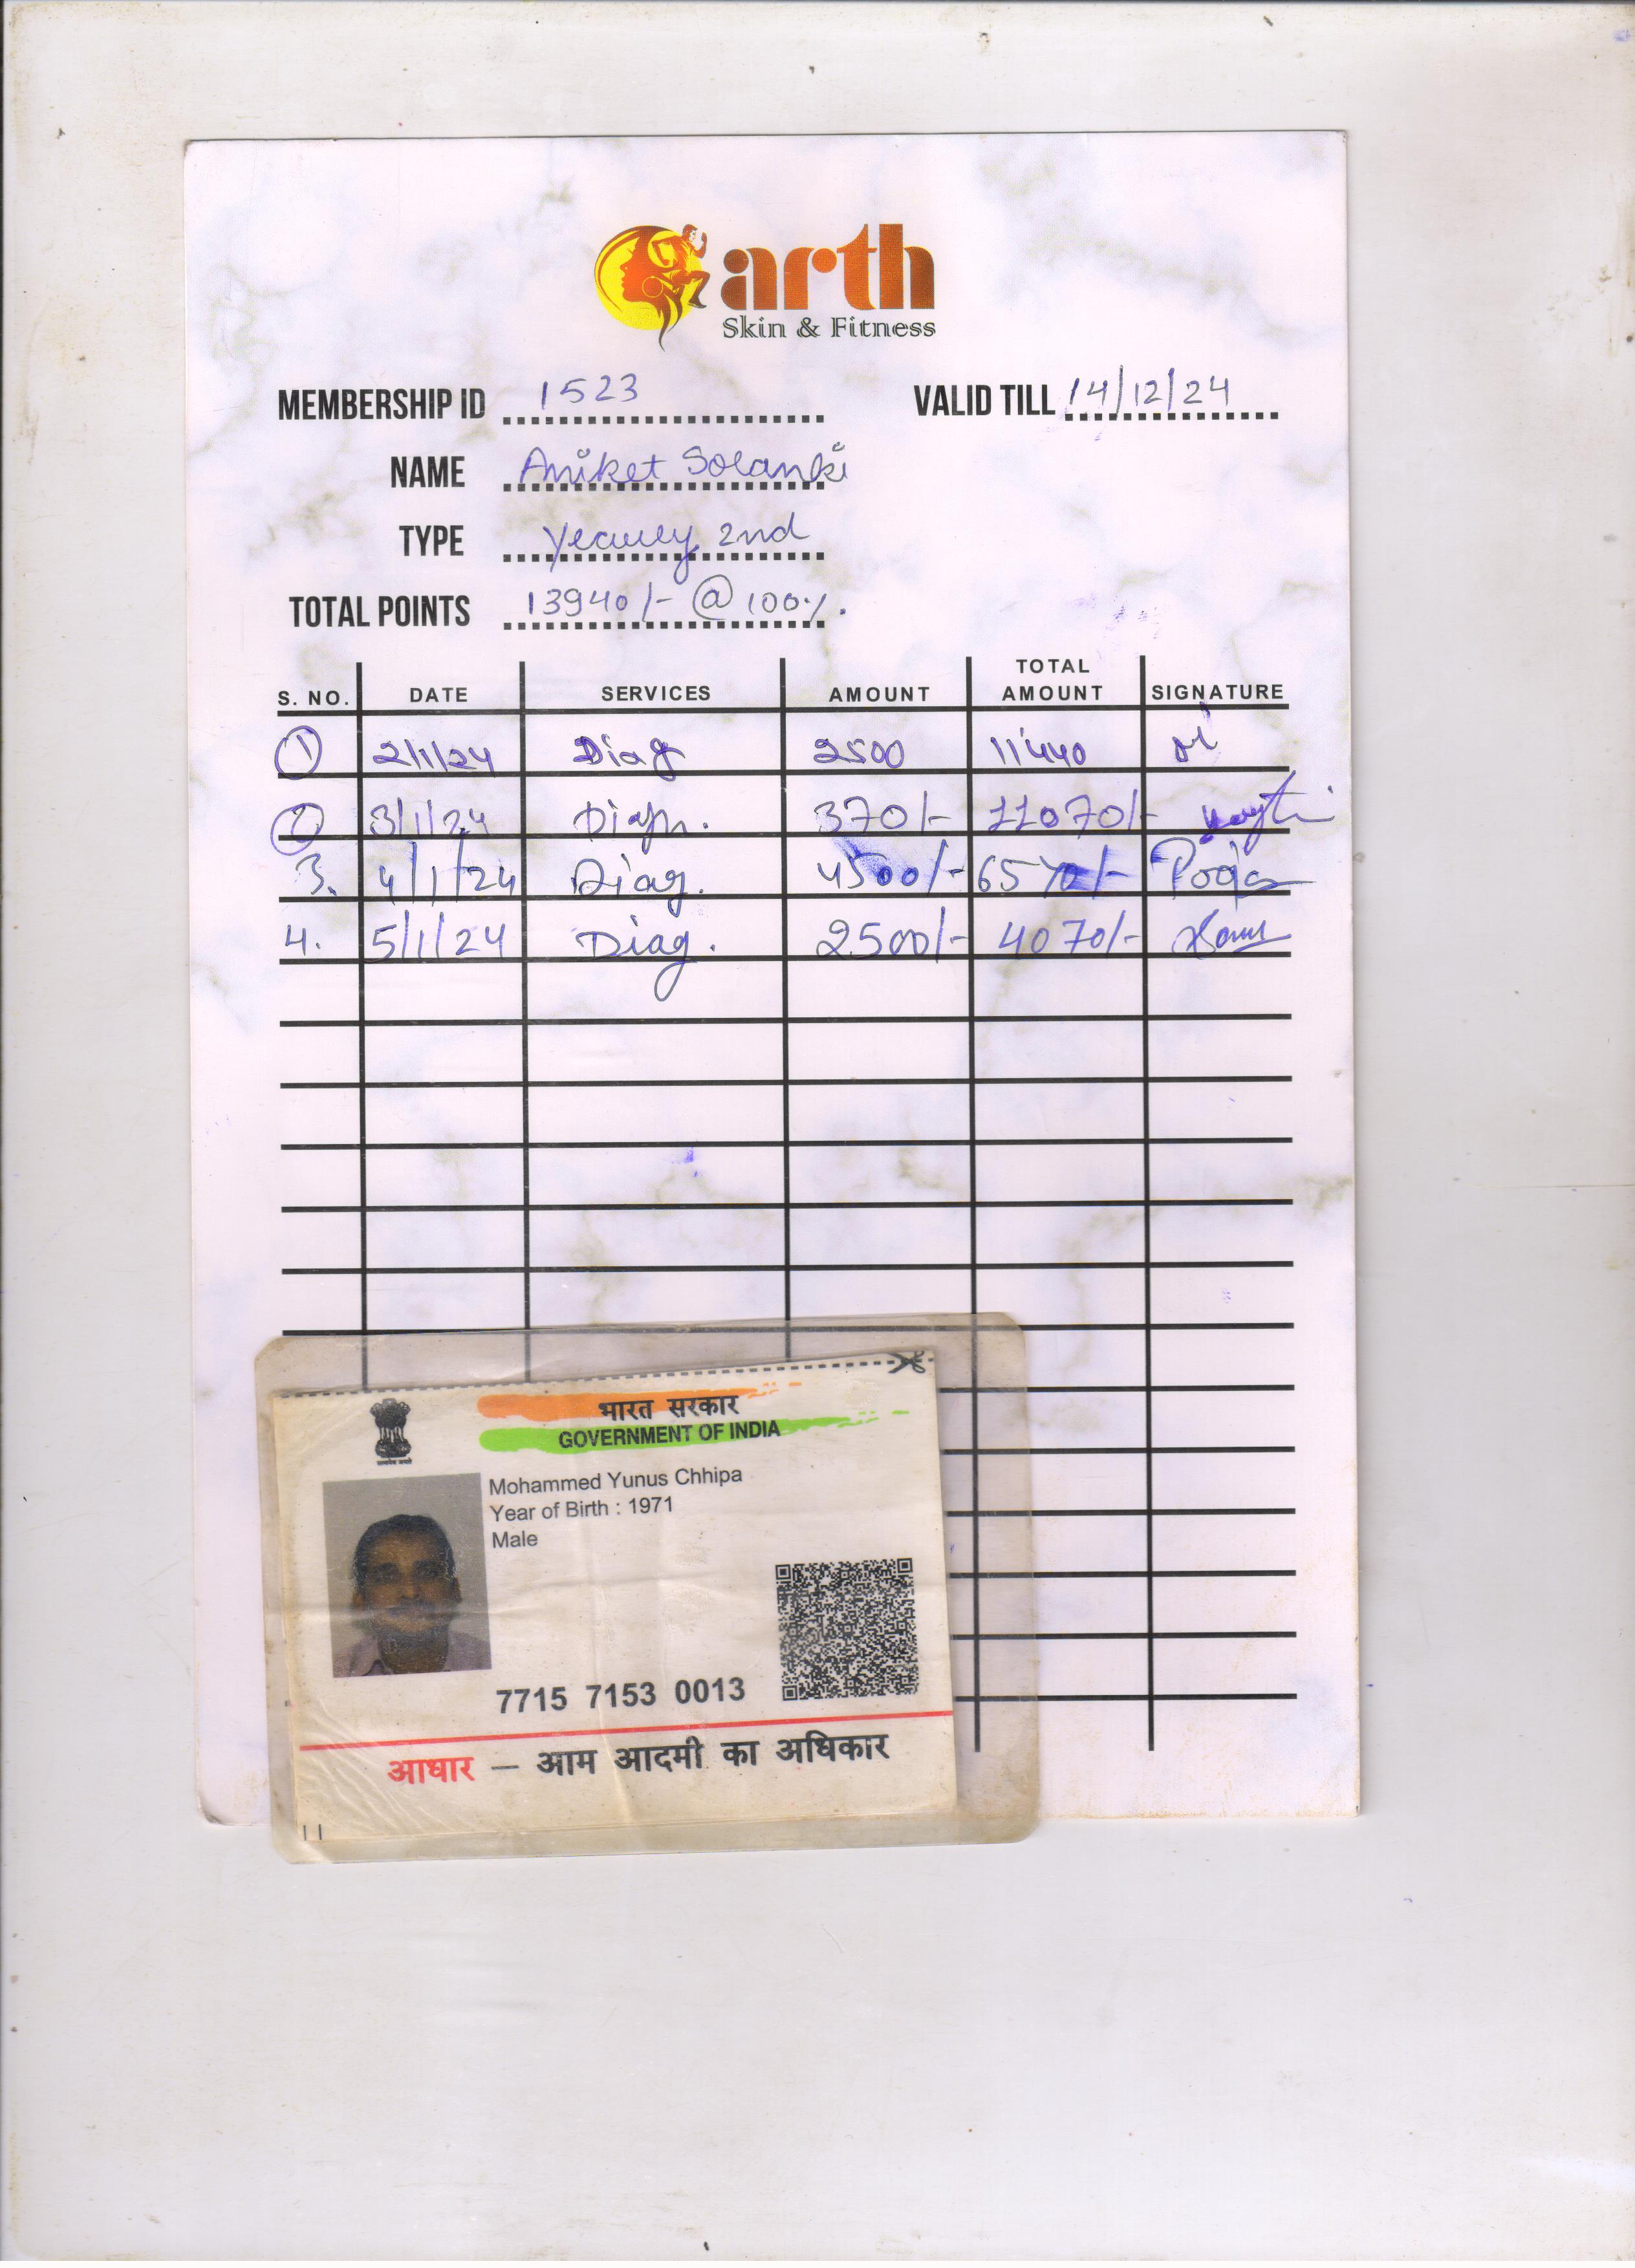 arth
Skin & Fitness
MEMBERSHIP ID 1523 VALID TILL 14/12/24
NAME Aniket Solanki
TYPE Yearly 2nd
TOTAL POINTS 13940/- @ 100%.
S. NO. DATE SERVICES AMOUNT TOTAL AMOUNT SIGNATURE
1 2/1/24 Diag 2500 11440
2 3/1/24 370/- 11070/-
3. 4/1/24 Diag. 4500/- 6570/- Pooja
4. 5/1/24 Diag. 2500/- 4070/-
भारत सरकार
GOVERNMENT OF INDIA
Mohammed Yunus Chhipa
Year of Birth : 1971
Male
7715 7153 0013
आधार — आम आदमी का अधिकार